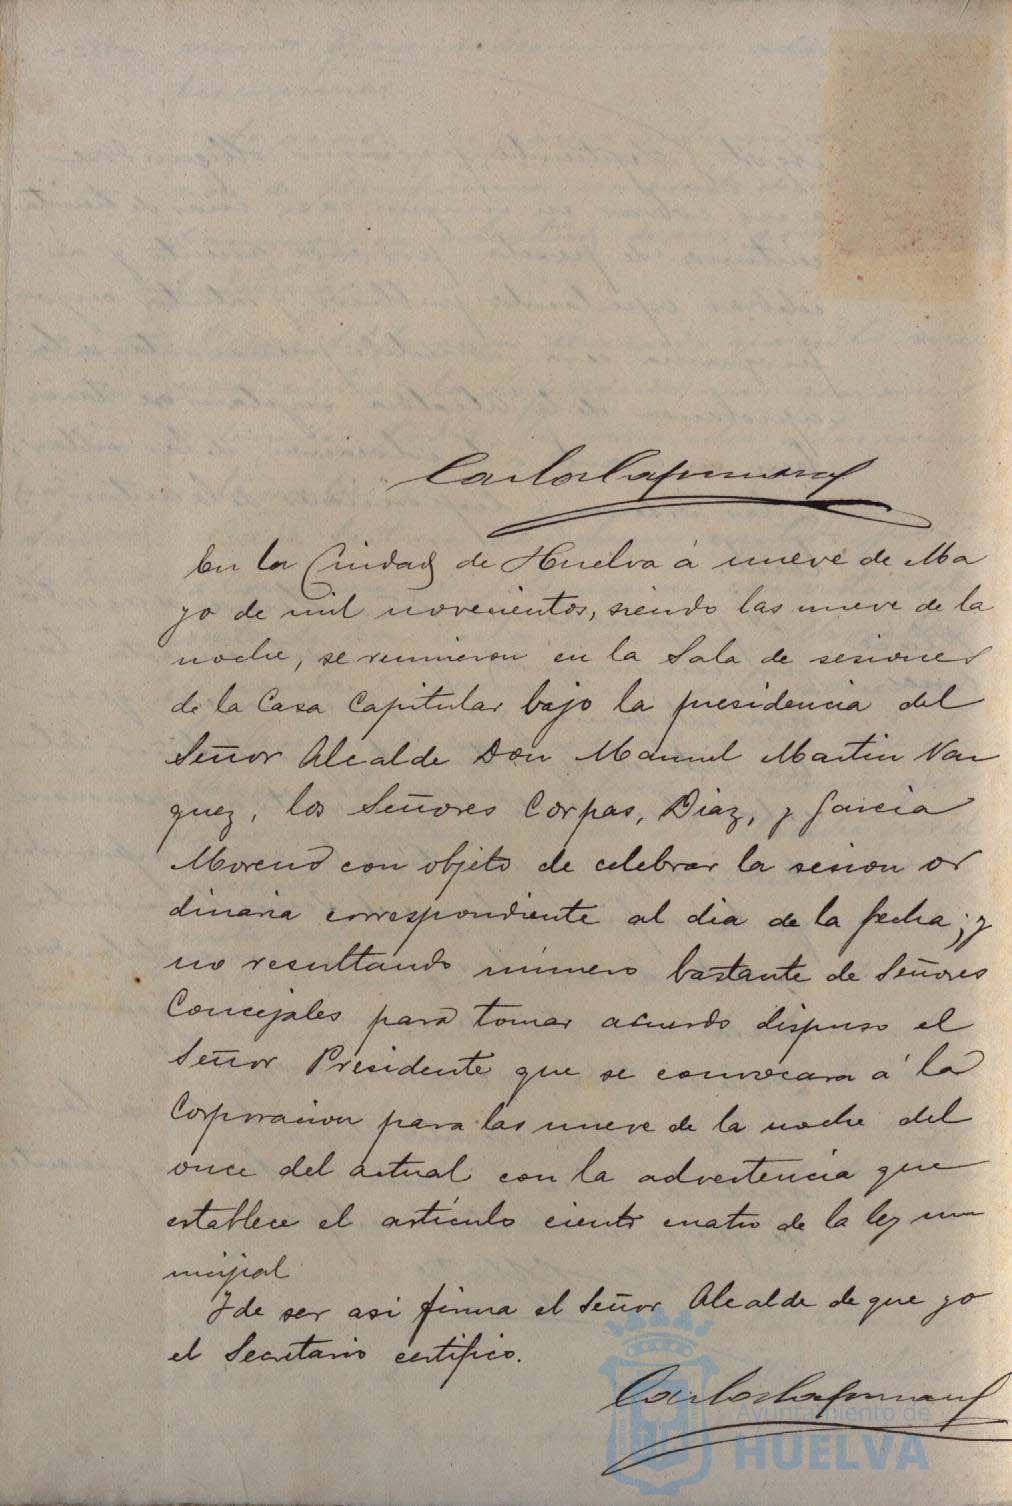 En la Ciudad de Huelva á nueve de Ma
yo de mil novecientos, siendo las nueve de la
noche, se reunieron en la Sala de sesiones
de la Casa Capitular bajo la presidencia del
Señor Alcalde Don Manuel Martin Vaz
quez, los Señores Corpas, Diaz, y Garcia
Moreno con objeto de celebrar la sesion or
dinaria correspondiente al dia de la fecha; y
no resultando número bastante de Señores
Concejales para tomar acuerdo dispuso el
Señor Presidente que se convocara á la
Corporacion para las nueve de la noche del
once del actual con la advertencia que
establece el artículo ciento cuatro de la ley mu
nicipal
Y de ser asi firma el Señor Alcalde de que yo
el Secretario certifico.
Ayuntamiento de
HUELVA